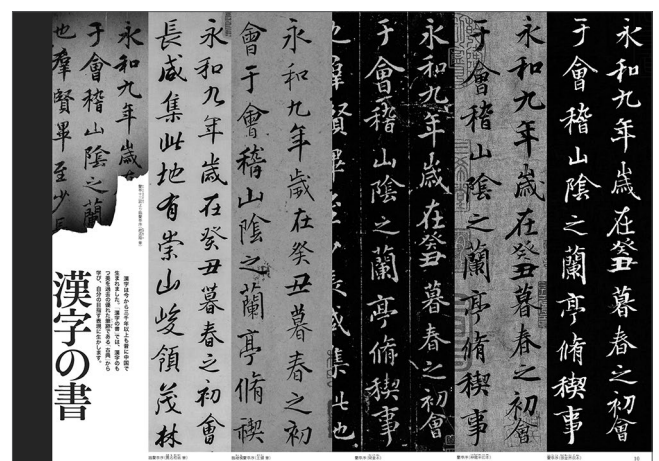 永和九年歲在癸丑暮春之初會
于會稽山陰之蘭亭脩稧事
永和九年歲在癸丑暮春之初會
于會稽山陰之蘭亭脩稧事
永和九年歲在癸丑暮春之初會
于會稽山陰之蘭亭脩稧事
也羣賢畢至少長咸集此地
永和九年歲在癸丑暮春之初
會于會稽山陰之蘭亭脩禊
永和九年歲在癸丑暮春之初會
長咸集此地有崇山峻領茂林
永和九年歲
于會稽山陰之蘭
也羣賢畢至少
漢字は今から三千年以上も昔に中国で
生まれました。「漢字の書」では、漢字のも
つ美を過去の優れた筆跡である「古典」から
学び、自分の目指す表現に生かします。
漢字の書
30